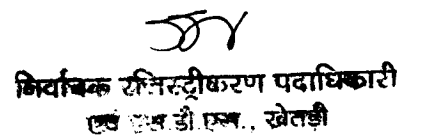 निर्वाचक रजिस्ट्रीकरण पदाधिकारी
एवं एस.डी.एम., खेतड़ी